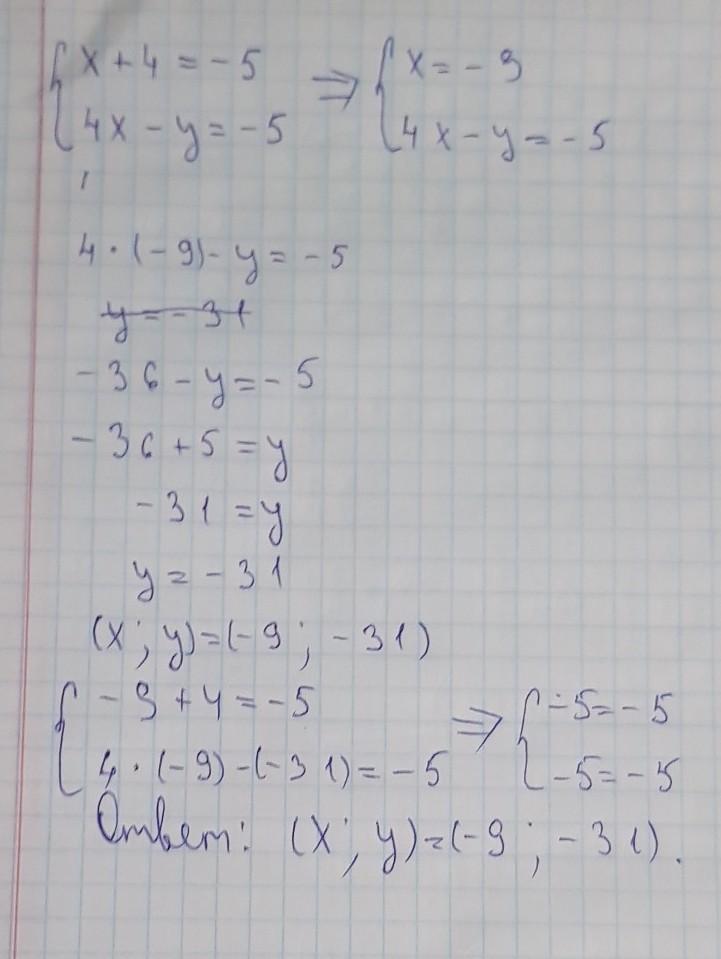 { x + 4 = - 5 ⇒ { x = - 9
{ 4x - y = - 5 { 4x - y = - 5
4 · (- 9) - y = - 5
y = - 31
- 36 - y = - 5
- 36 + 5 = y
- 31 = y
y = - 31
(x ; y) = (- 9 ; - 31)
{ - 9 + 4 = - 5 ⇒ { - 5 = - 5
{ 4 · (- 9) - (- 31) = - 5 { - 5 = - 5
Ответ: (x ; y) = (- 9 ; - 31).